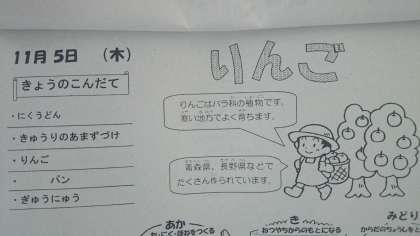 11月5日 (木)
りんご
きょうのこんだて
・にくうどん
・きゅうりのあまずづけ
・りんご
・ パン
・ぎゅうにゅう
りんごはバラ科の植物です。
寒い地方でよく育ちます。
青森県、長野県などで
たくさん作られています。
あか
き
おつやちからのもとになる
みどり
からだのちょうしを